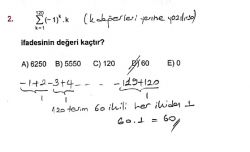 2. 120
∑ (-1)ᵏ.k (k değerleri yerine yazılırsa)
k=1
ifadesinin değeri kaçtır?
A) 6250 B) 5550 C) 120 D) 60 E) 0
-1+2-3+4- - - - -119+120
1 1 1
120 terim 60 ikili her ikiden 1
60.1=60